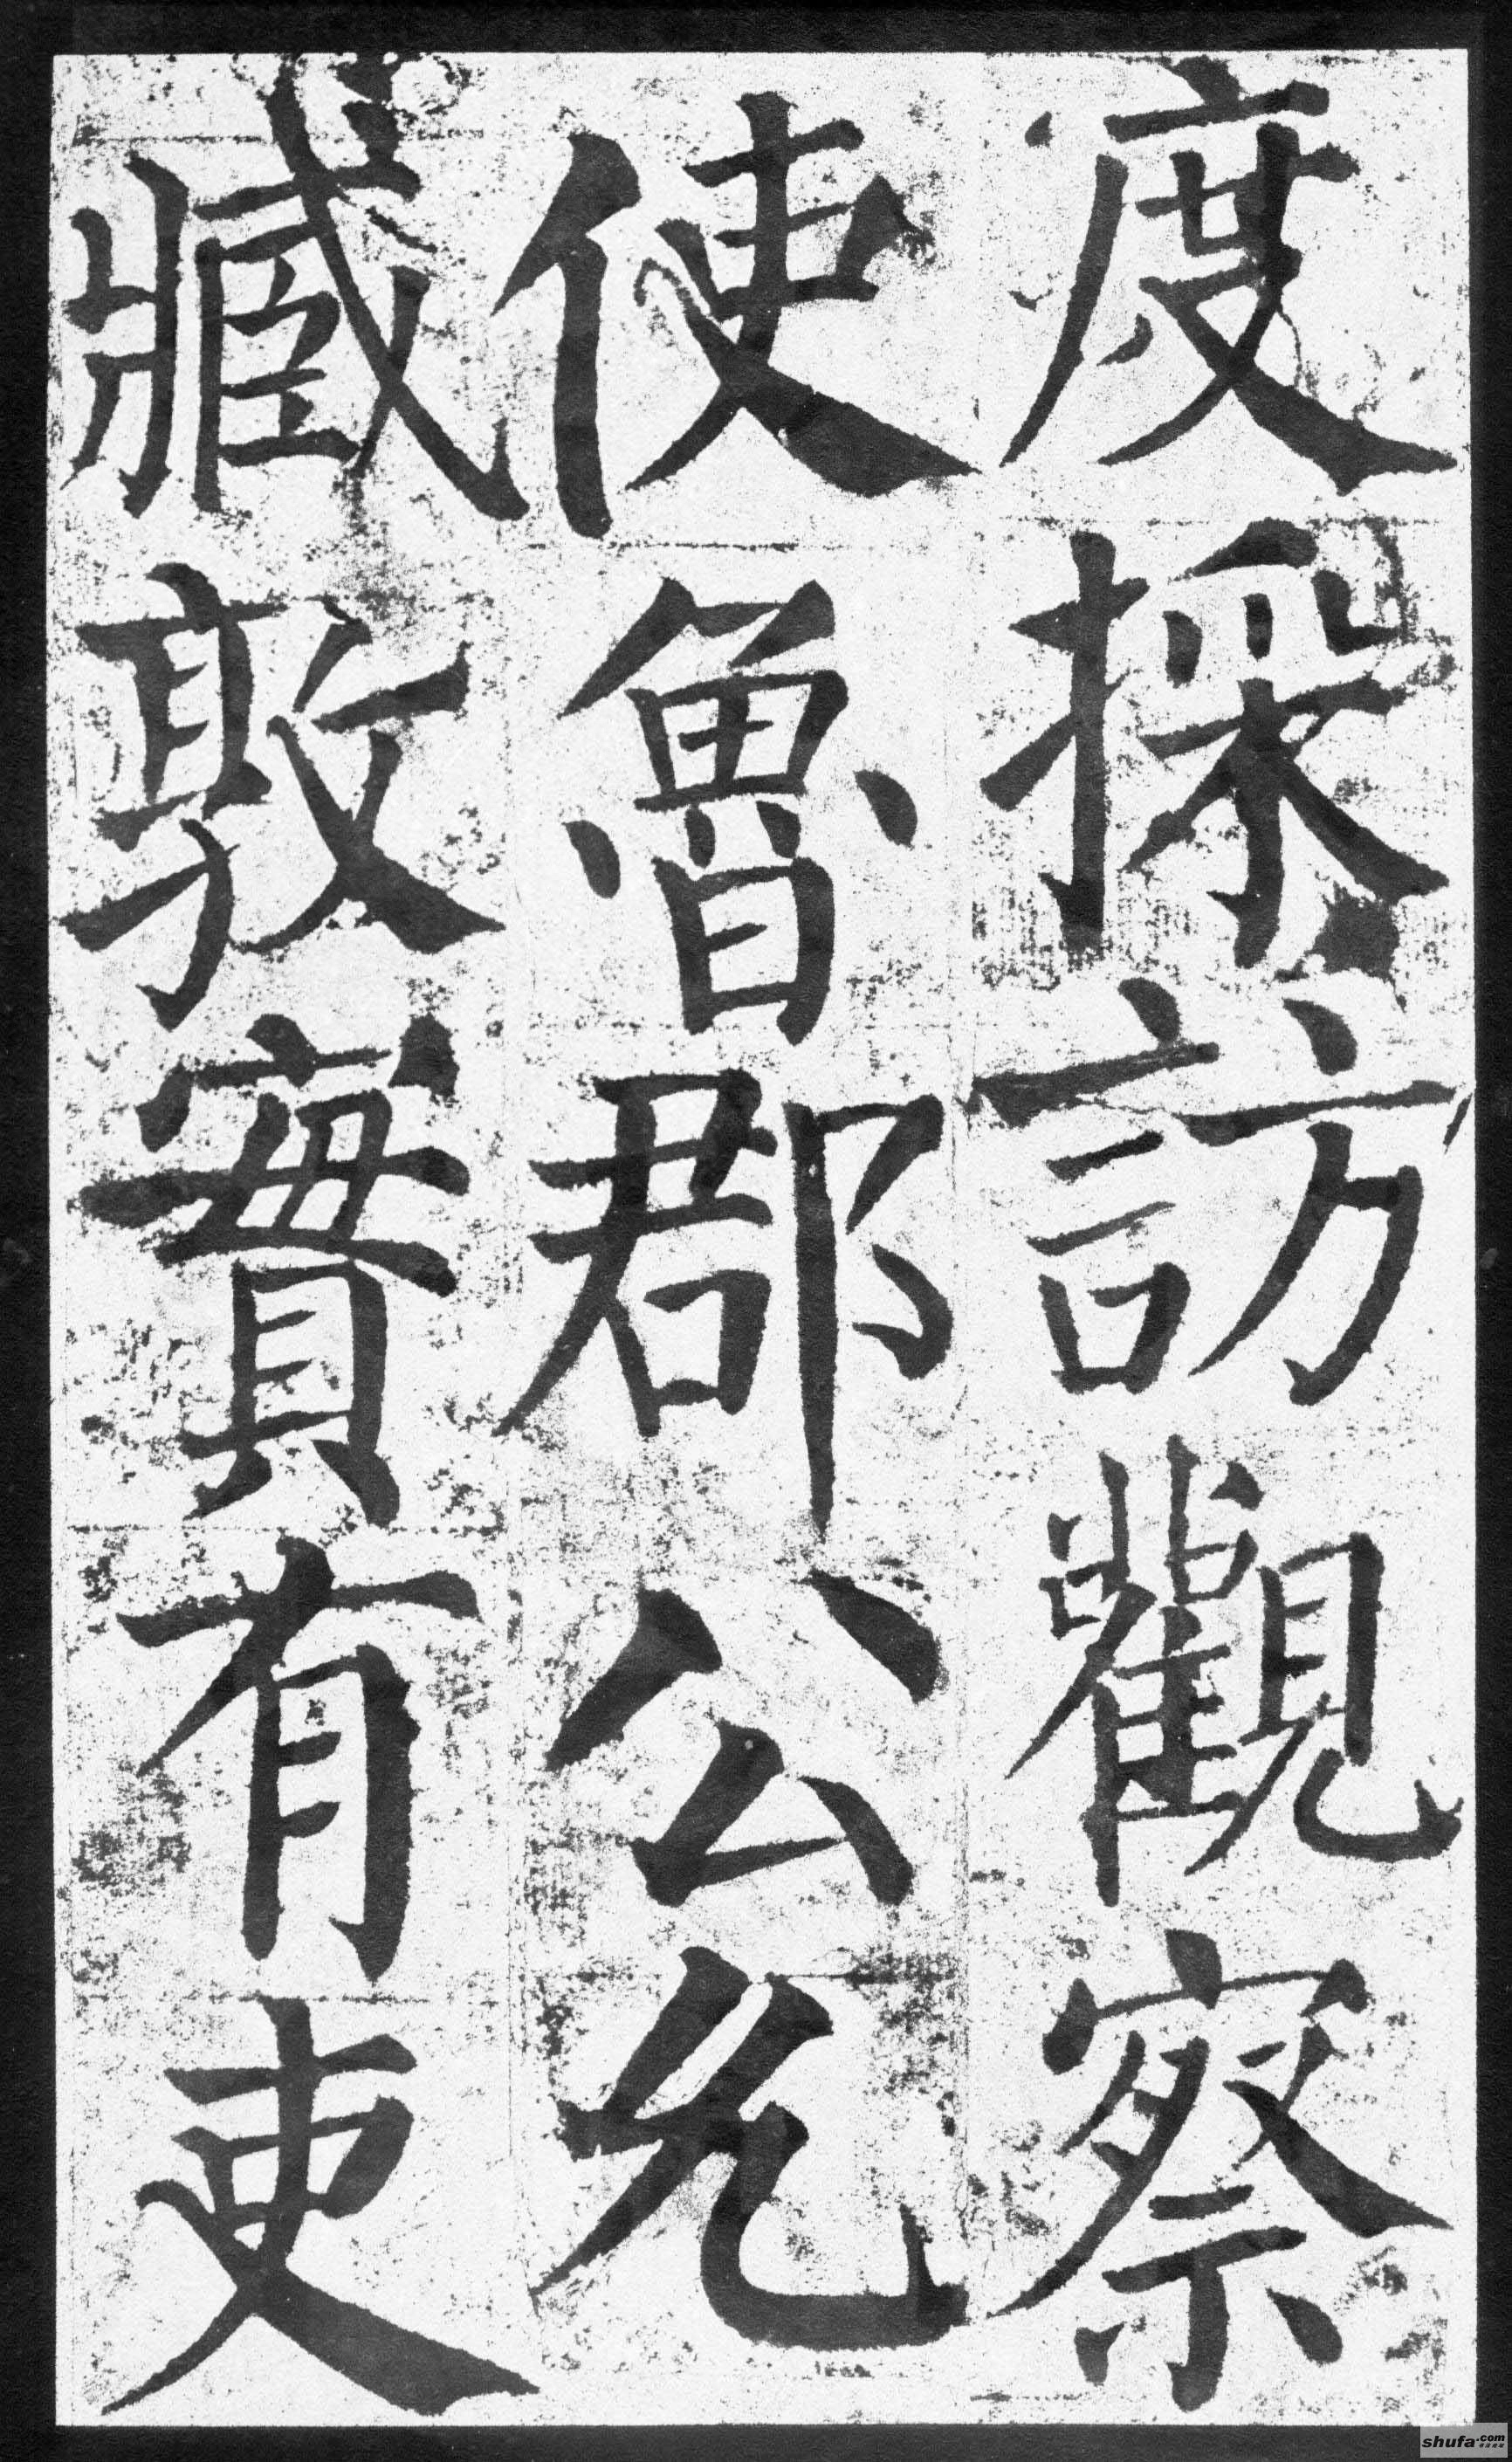 度採訪觀察
使魯郡公允
臧敦實有吏
shufa.com